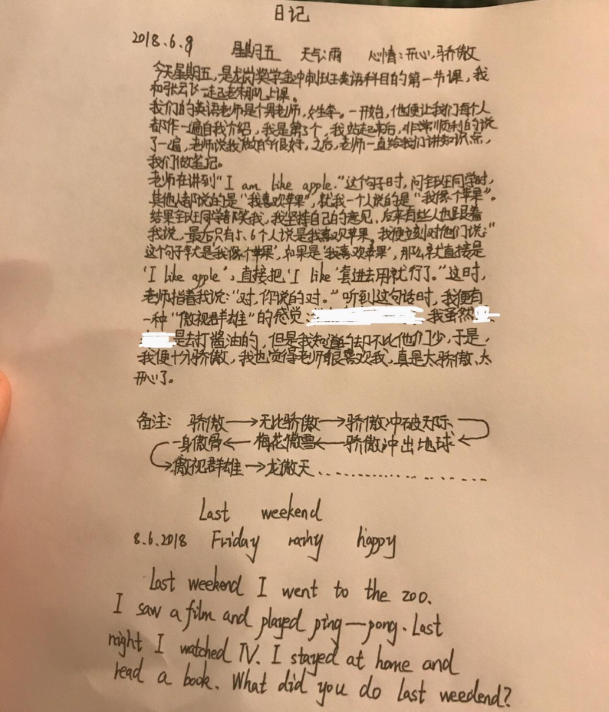 日记
2018.6.8 星期五 天气:雨 心情:开心,骄傲
今天星期五,是奖学金冲刺班英语科目的第一节课,我
和张云飞一起去上课。
我们的英语老师是个男老师,姓李。一开始,他便让我们每个人
都作一遍自我介绍,我是第5个,我站起来后,非常顺利的说
了一遍,老师说我做的很好,之后,老师一直给我们讲知识点,
我们做笔记。
老师在讲到“I am like apple.”这个句子时,问全班同学时,
其他人都说的是“我喜欢苹果”,就我一人说的是“我像个苹果”。
结果全班同学都笑我,我坚持自己的意见,后来有些人也跟着
我说,最后只有5、6个人说是我喜欢苹果。我便立刻对他们说:“
这个句子就是我像个苹果’,如果是‘我喜欢苹果’,那么就直接是
‘I like apple’,直接把‘I like’套进去用就行了。”这时,
老师指着我说:“对,你说的对。”听到这句话时,我便有
一种“傲视群雄”的感觉 我虽然
是去打酱油的,但是我知道的却不比他们少,于是,
我便十分骄傲,我也觉得老师很喜欢我,真是太骄傲,太
开心了。
备注: 骄傲→无比骄傲→骄傲冲破天际
一身傲骨←梅花傲雪←骄傲冲出地球
傲视群雄→龙傲天......
Last weekend
8.6.2018 Friday rainy happy
Last weekend I went to the zoo.
I saw a film and played ping—pong. Last
night I watched TV. I stayed at home and
read a book. What did you do last weedend?